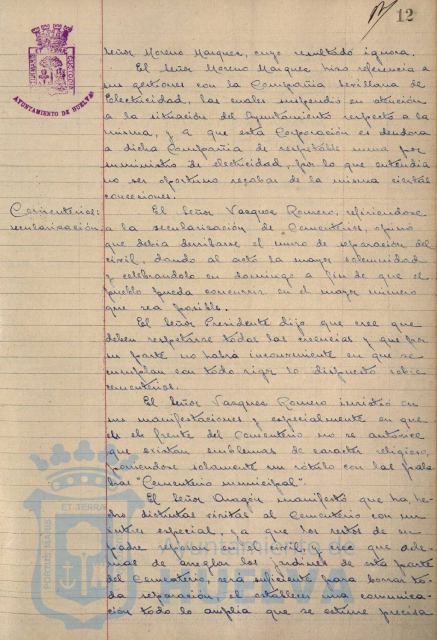 12
AYUNTAMIENTO DE HUELVA
Señor Moreno Marquez, cuyo resultado ignora.
El Señor Moreno Marquez hizo referencia a
sus gestiones con la Compañia Sevillana de
Electricidad, las cuales suspendió en atención
a la situación del Ayuntamiento respecto a la
misma, y a que esta Corporación es deudora
a dicha Compañia de respetable suma por
suministro de electricidad, por lo que entendia
no ser oportuno recabar de la misma ciertas
concesiones.
Cementerios:
secularización.
El Señor Vazquez Romero, refiriendose
a la secularización de Cementerios, opinó
que debia derribarse el muro de separación del
civil, dando al acto la mayor solemnidad
y celebrandolo en domingo a fin de que el
pueblo pueda concurrir en el mayor número
que sea posible.
El Señor Presidente dijo que cree que
deben respetarse todas las creencias y que por
su parte no habrá inconveniente en que se
cumplan con todo rigor lo dispuesto sobre
cementerios.
El Señor Vazquez Romero insistió en
sus manifestaciones y especialmente en que
en el frente del Cementerio no se autorice
que existan emblemas de caracter religioso,
poniendose solamente un rótulo con las pala-
bras "Cementerio municipal".
El Señor Aragón manifestó que ha he-
cho distintas visitas al Cementerio con un
interés especial, ya que los restos de su
padre reposan en el civil, y cree que ade-
mas de arreglar los jardines de esta parte
del Cementerio, será suficiente para borrar to-
da separación el establecer una comunica-
ción todo lo amplia que se estime precisa
PORTUS MARIS ET TERRAE
Ayuntamiento de
HUELVA